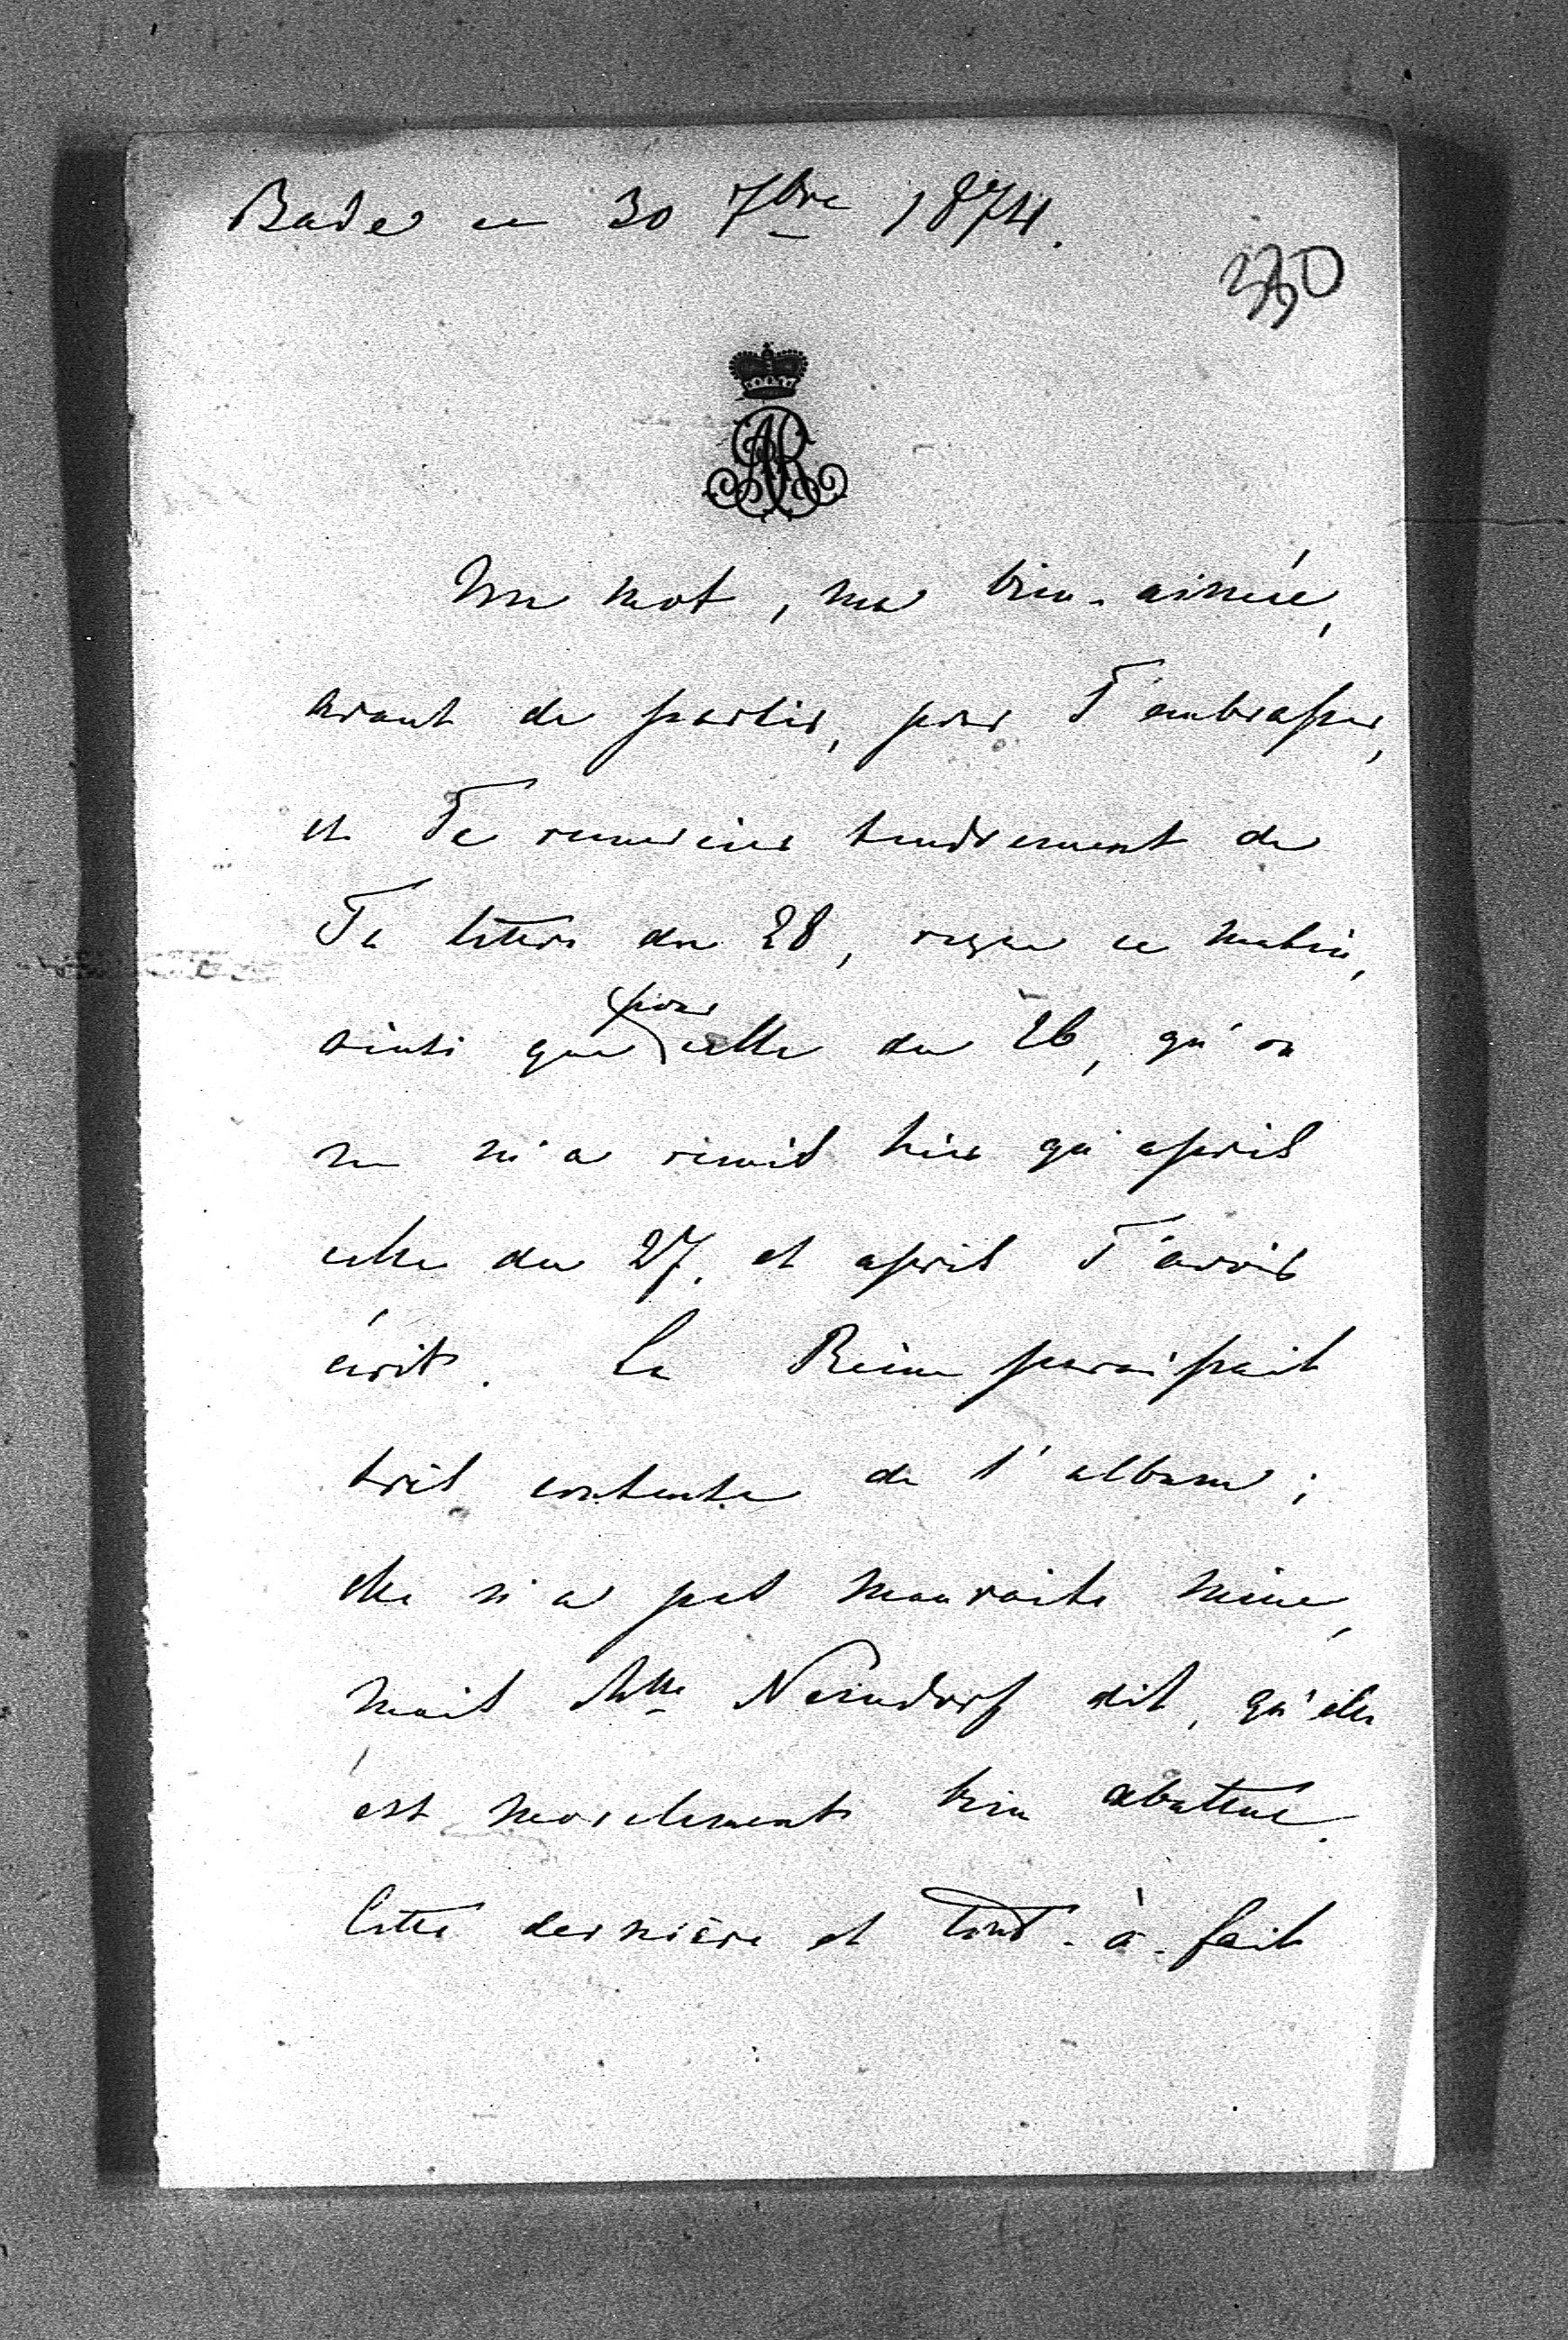 Bade ce 30 7bre 1874.
330
AR
Un mot, ma bien-aimée,
avant de partir, pour T'embrasser,
et Te remercier tendrement de
Ta lettre du 28, reçue ce matin,
pour
ainsi que celle du 26, qu'on
ne m'a remis hier qu'après
celle du 27. et après T'avoir
écrit. La Reine paraissait
très contente de l'album;
elle n'a pas mauvaise mine,
mais Mlle Neindorf dit, qu'elle
est moralement bien abattue.
Cette dernière et tout-à-fait